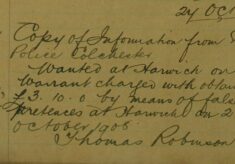 24 Oct
Copy of Information from
Police Colchester
Wanted at Harwich on
Warrant charged with obtain
£3.10.0 by means of fals
pretences at Harwich on 2
October 1908
Thomas Robinson